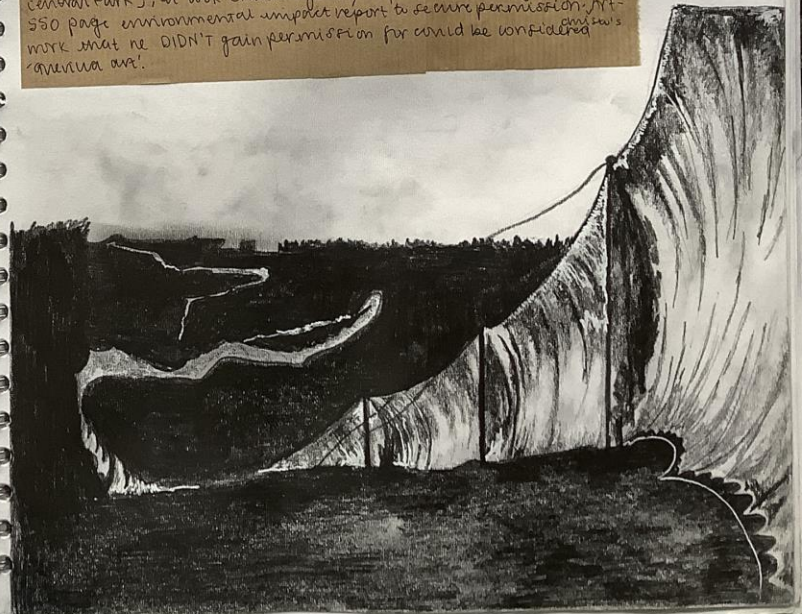 central Park),
550 page environmental impact report to secure permission. Art-
christo's
work that he DIDN'T gain permission for could be considered
'guerilla art'.